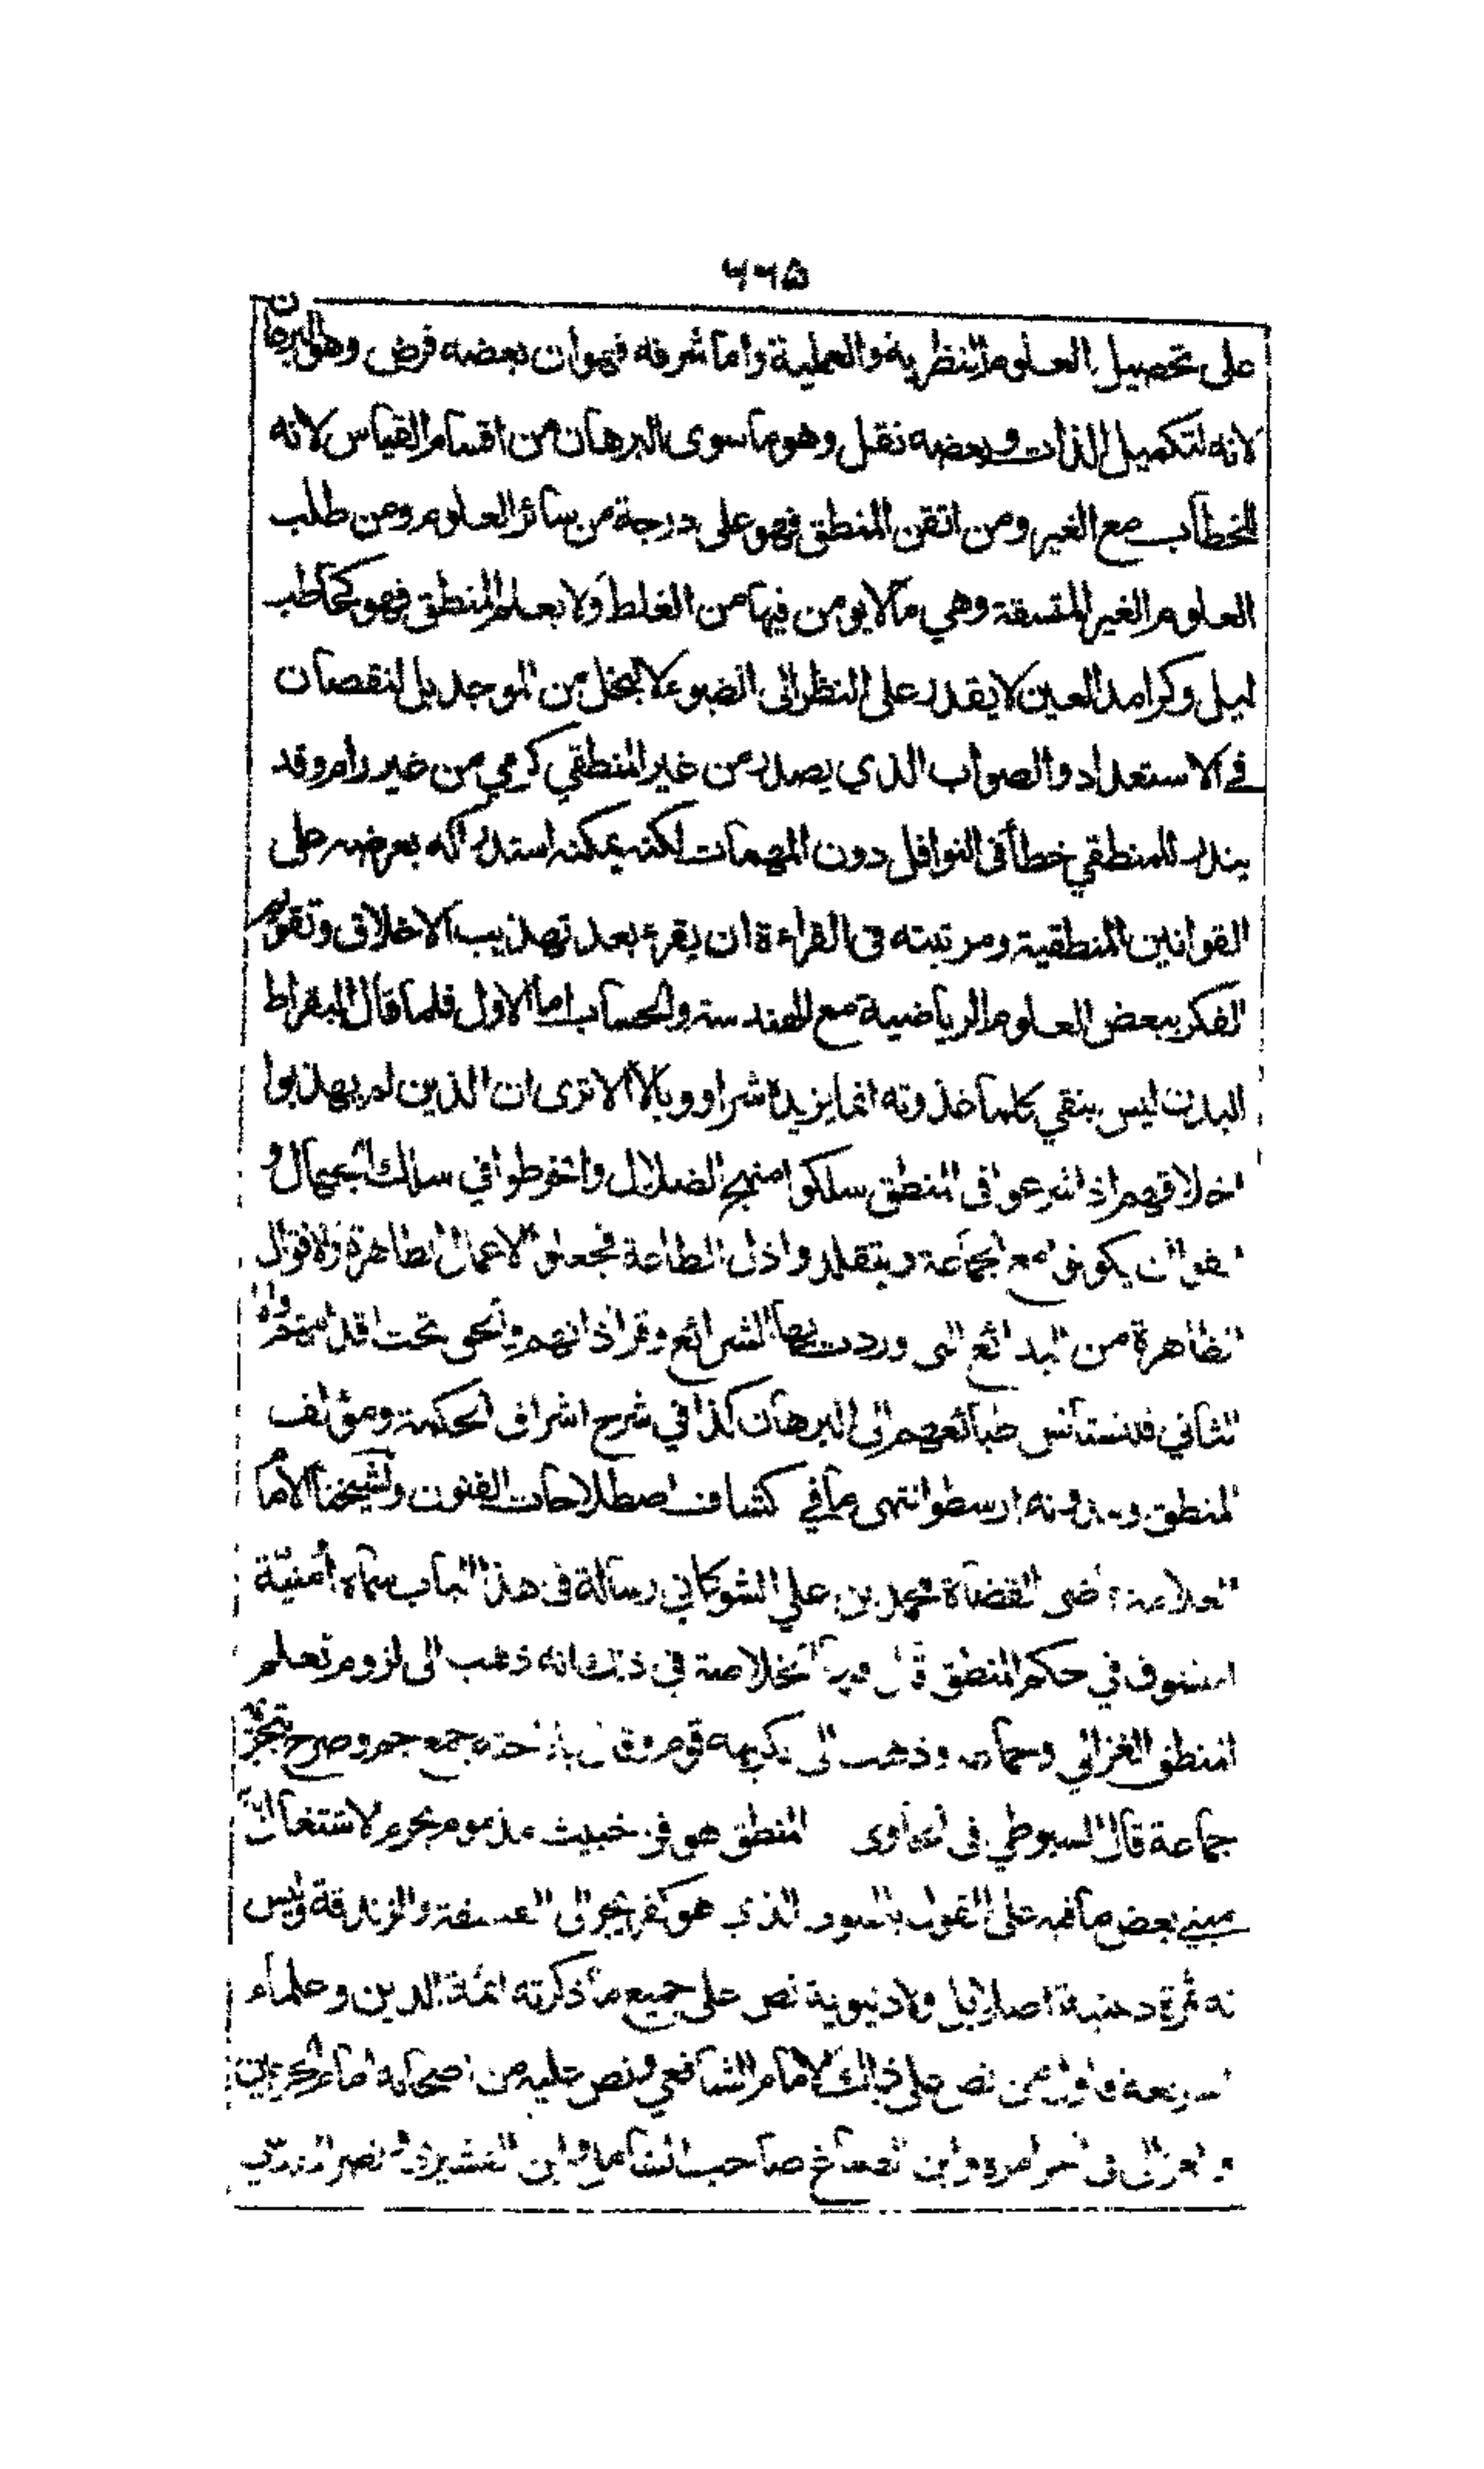 ٦٦٥
على تحصيل العلوم النظرية والعملية واما شرفه فهو ان بعضه فرض وهو البرهان
لانه لتكميل الذات وبعضه نقل وهو ما سوى البرهان من اقسام القياس لانه
للخطاب مع الغير ومن اتقن المنطق فهو على درجة من سائر العلوم ومن طلب
العلوم الغير المتسقة وهي ما لا يومن فيها من الغلط ولا يعلم المنطق فهو كحاطب
ليل وكرامد العين لا يقدر على النظر الى الضوء لا لبخل من الموجد بل لنقصان
في الاستعداد والصواب الذي يصدر من غير المنطقي كرمي من غير رام وقد
يندر للمنطقي خطأ في النوافل دون المهمات لكنه يمكنه استدراكه بعرضه على
القوانين المنطقية ومرتبته في القراءة ان يقرء بعد تهذيب الاخلاق وتقويم
الفكر ببعض العلوم الرياضية مع الهندسة والحساب اما الاول فلما قال البقراط
البدن ليس بنقي كلما غذوته انما يزيد شرا ووبالا الا ترى ان الذين لم يهذبوا
اخلاقهم اذا شرعوا في المنطق سلكوا منهج الضلال وانخرطوا في سلك الجهال و
انفوا ان يكونوا مع الجماعة ويتقلدوا ذل الطاعة فجعلوا الاعمال الطاهرة والاقوال
الظاهرة من البدائع التي وردت بها الشرائع وقر اذانهم والحق تحت اقدامهم واما
الثاني فلتستأنس طبائعهم الى البرهان كذا في شرح اشراق الحكمة ومؤلف
المنطق ومدونه ارسطو انتهى ما في كشاف اصطلاحات الفنون ولشيخنا الامام
العلامة قاضي القضاة محمد بن علي الشوكاني رسالة في هذا الباب سماه أمنية
المتشوف في حكم المنطق قال فيها الخلاصة في ذلك انه ذهب الى لزوم تعلم
المنطق الغزالي وجماعة وذهب الى تكريهه قوم وقال باباحته جمع جم وصرح بتحريمه
جماعة قال السيوطي في الحاوى المنطق هو فن خبيث مذموم يحرم الاشتغال به
مبني بعض ما فيه على القول بالهيولى الذي هو كفر يجر الى الفلسفة والزندقة وليس
له ثمرة دينية اصلا بل ولا دنيوية نص على جميع ما ذكرته ائمة الدين وعلماء
الشريعة فاول من نص على ذلك الامام الشافعي ونص عليه من اصحابه امام الحرمين
والغزالي في اخر امره وابن الصباغ صاحب الشامل وابن القشيري ونصر المقدسي